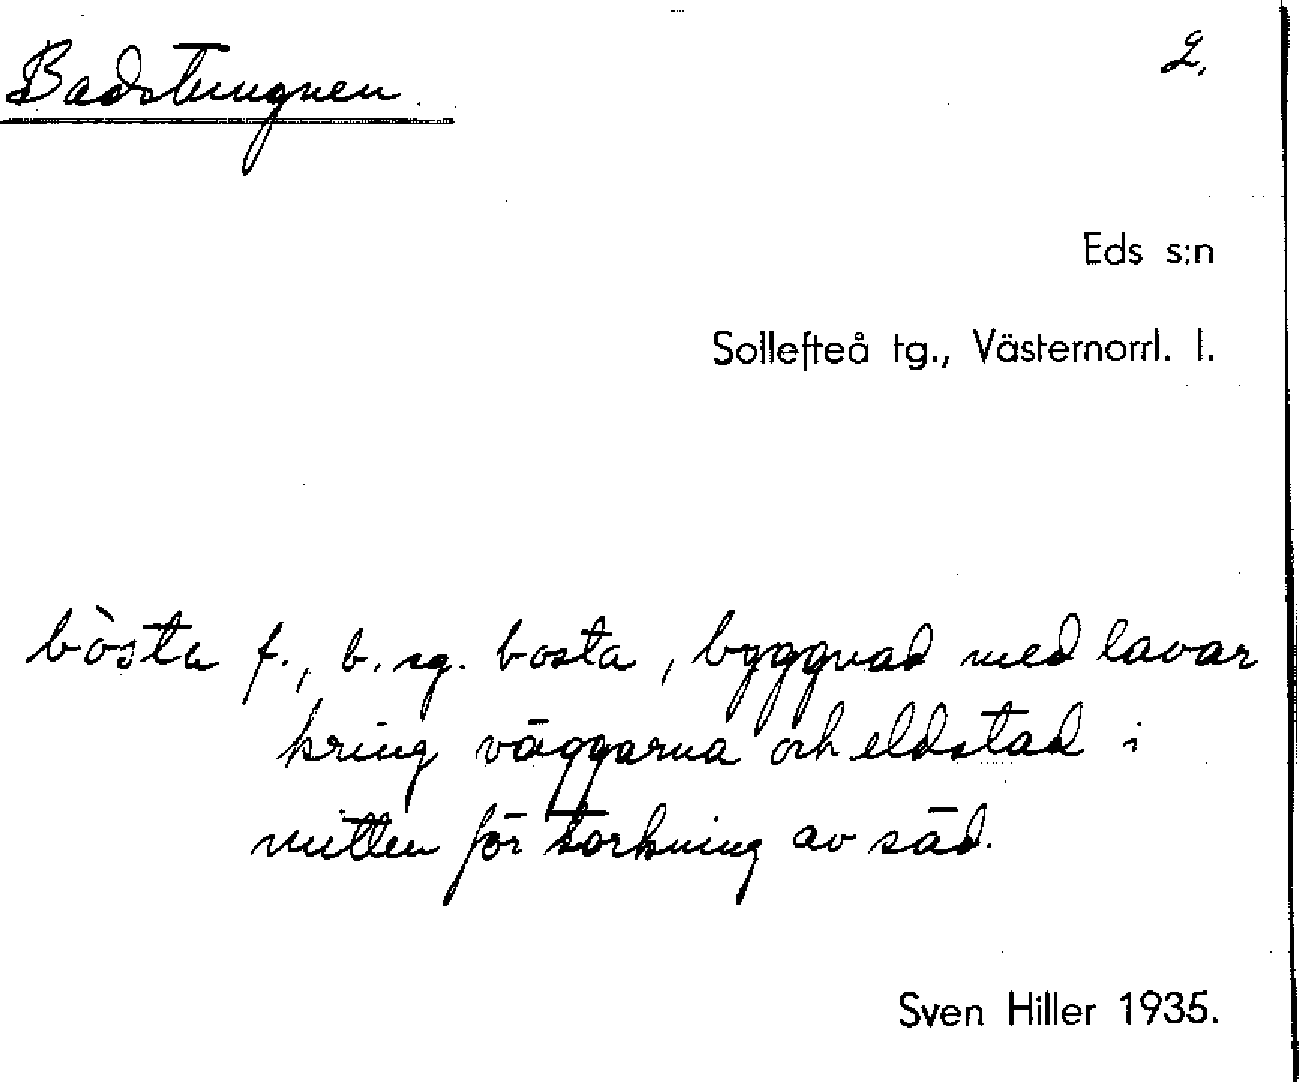 Badstuugnen
2.
Eds s:n
Sollefteå tg., Västernorrl. l.
bòsta f., b. sg. bosta, byggnad med lavar
kring väggarna och eldstad i
mitten för torkning av säd.
Sven Hiller 1935.